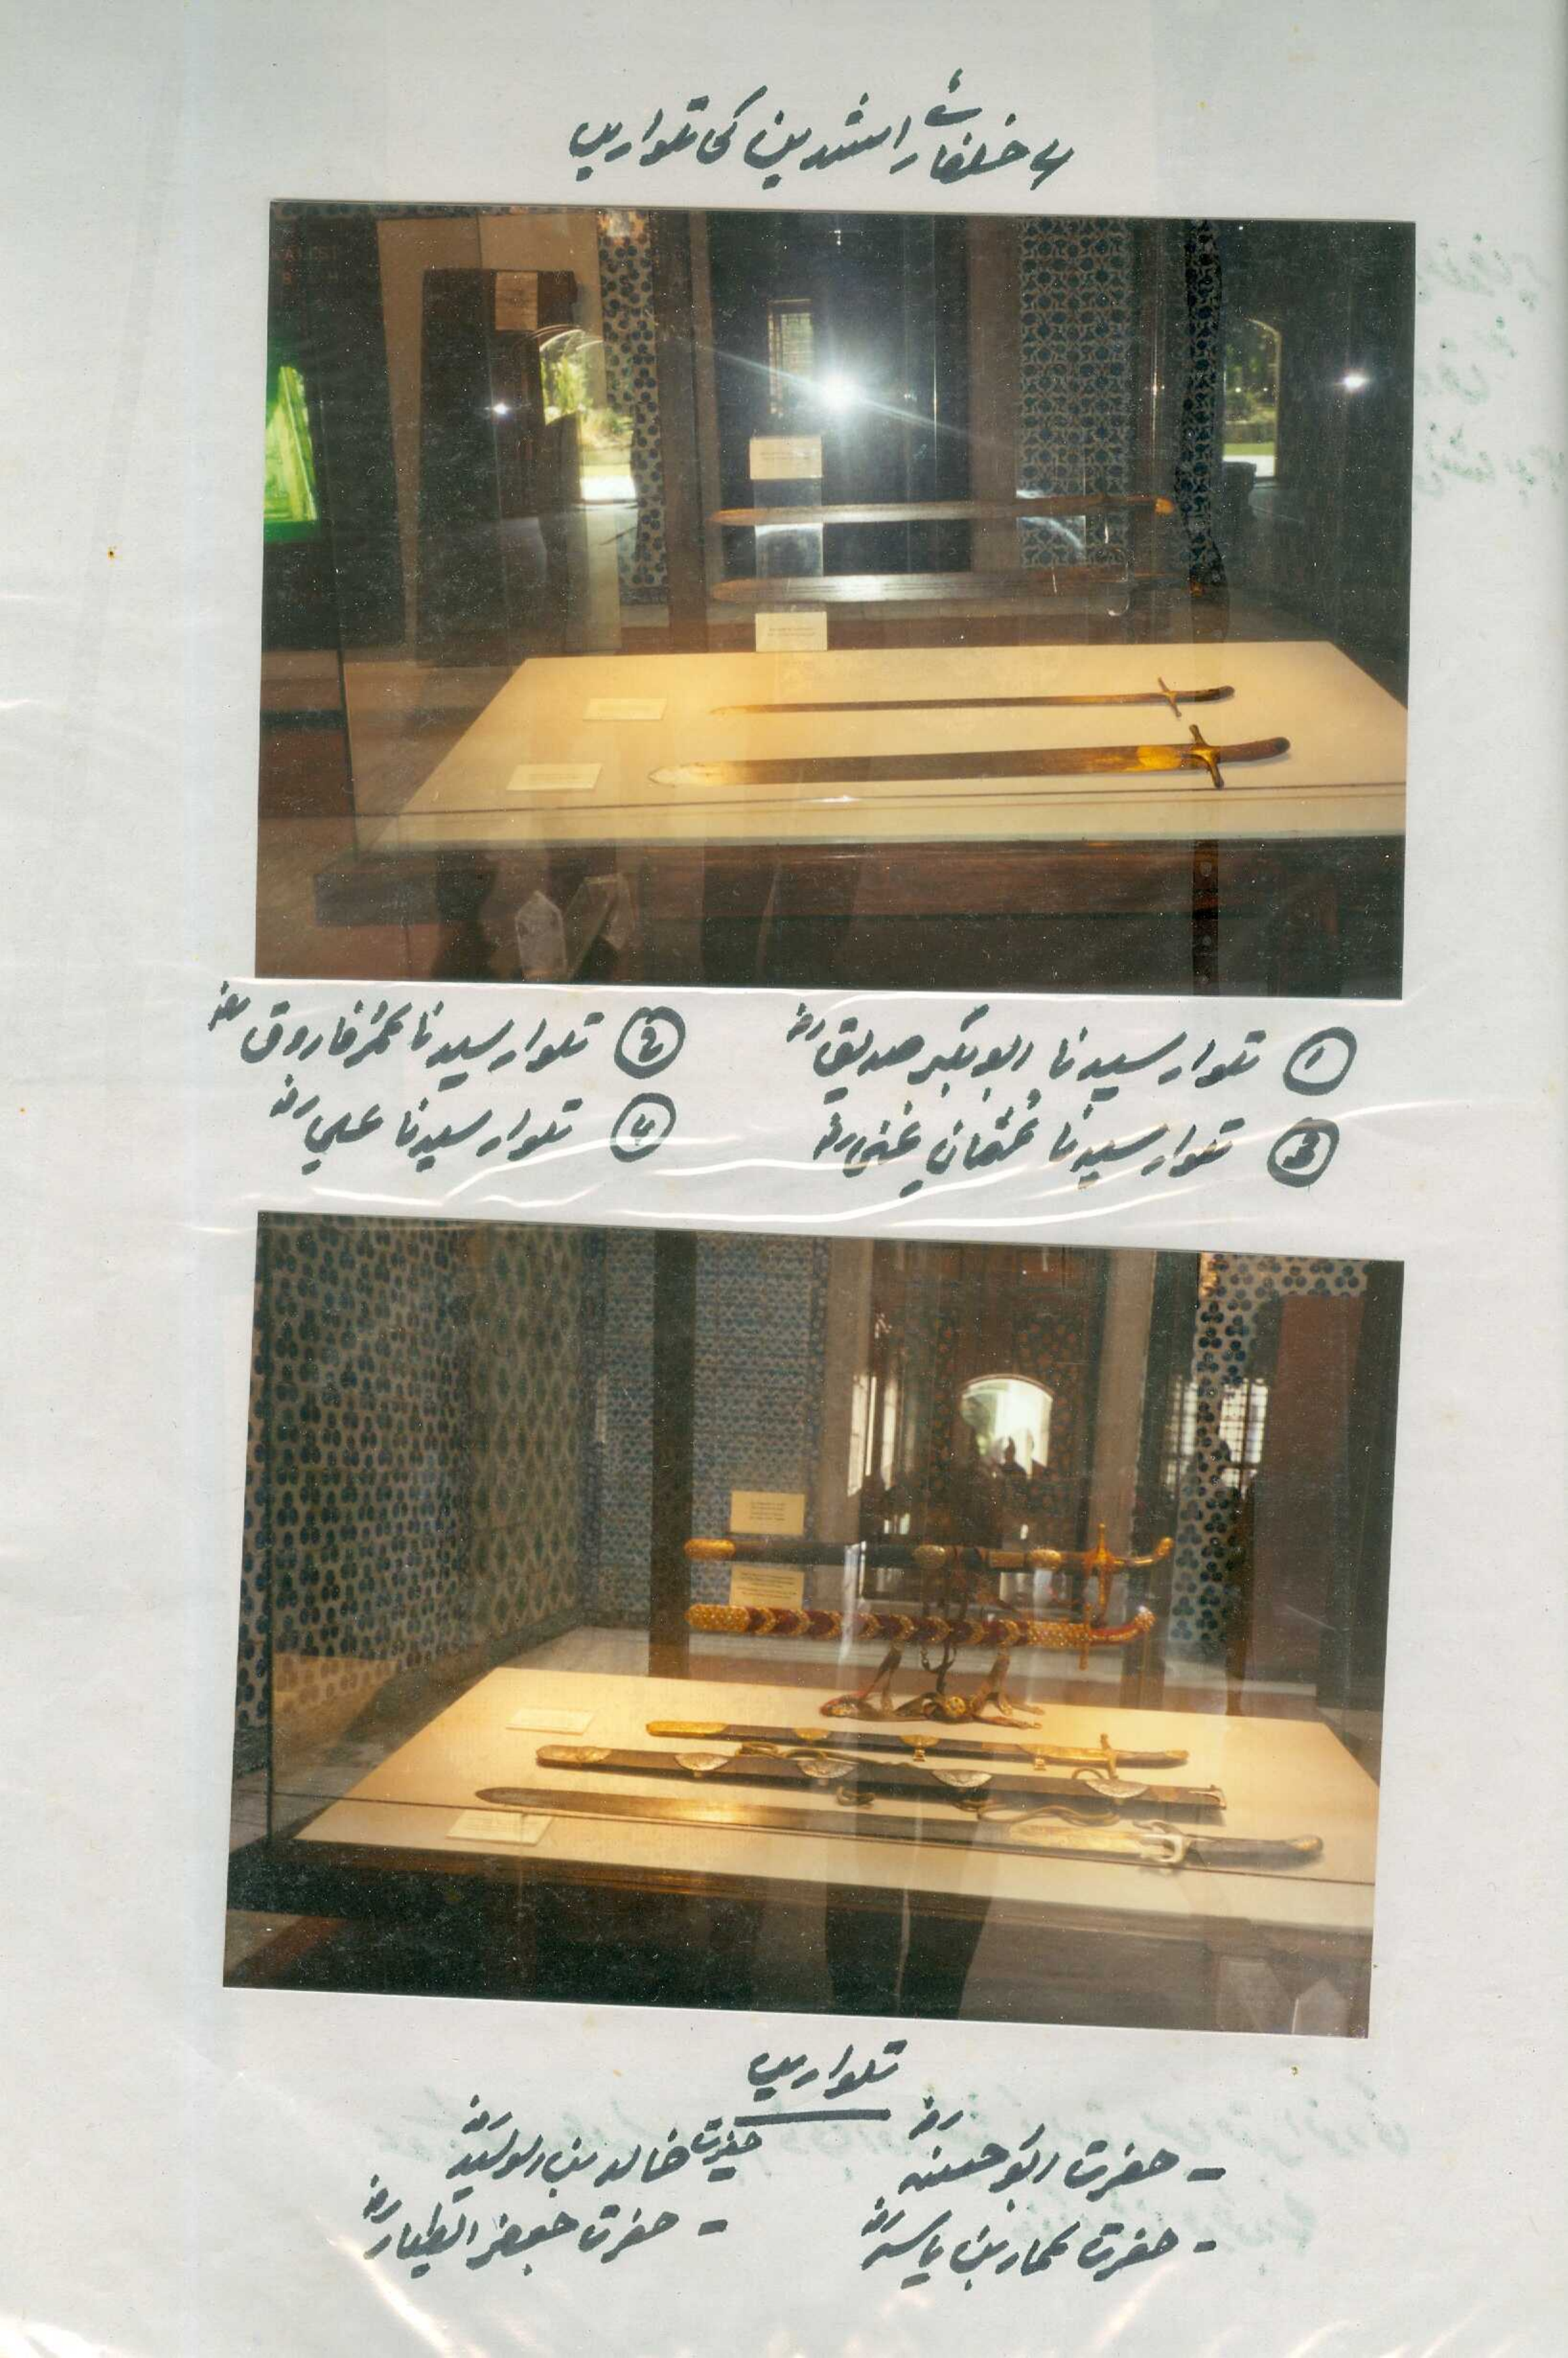 ۴ خلفائے راشدین کی تلواریں
① تلوار سیدنا ابوبکر صدیقؓ
② تلوار سیدنا عمر فاروقؓ
③ تلوار سیدنا عثمان غنیؓ
④ تلوار سیدنا علیؓ
تلواریں
- حضرت ابو
حضرت خالد بن الولیدؓ
- حضرت عمار بن یاسرؓ
- حضرت جعفر الطیارؓ